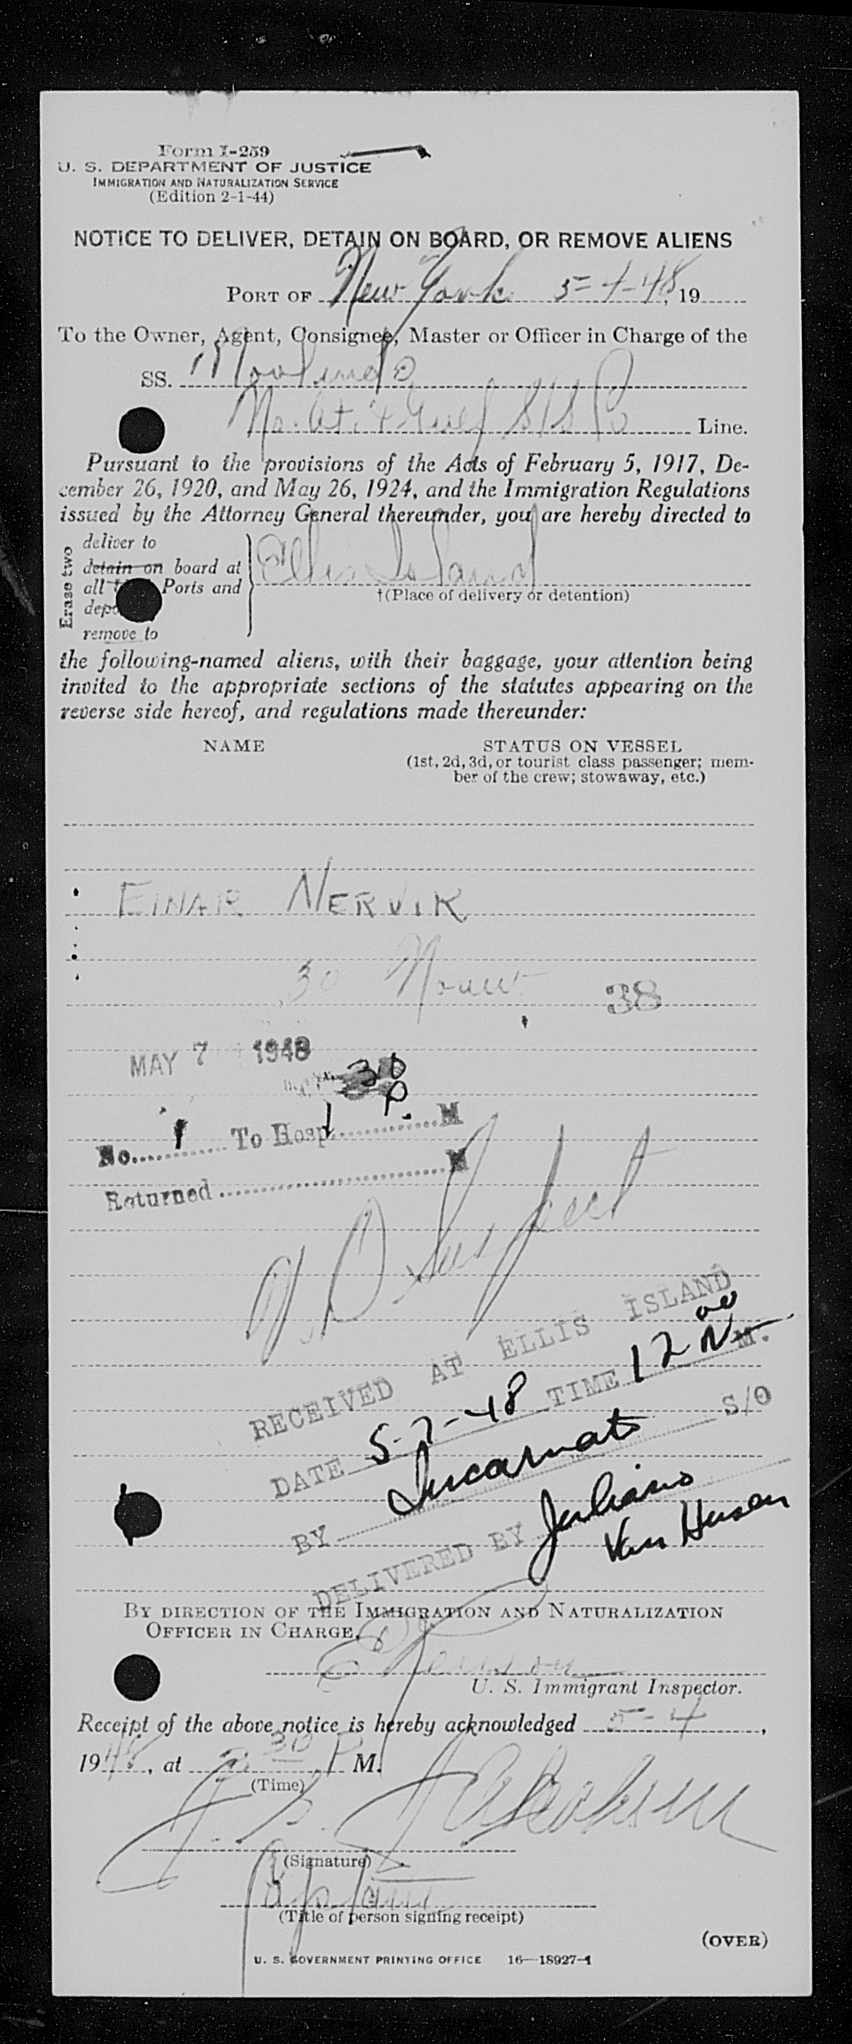 Form I-259
U. S. DEPARTMENT OF JUSTICE
IMMIGRATION AND NATURALIZATION SERVICE
(Edition 2-1-44)
NOTICE TO DELIVER, DETAIN ON BOARD, OR REMOVE ALIENS
PORT OF New York 5-4-48, 19
To the Owner, Agent, Consignee, Master or Officer in Charge of the
SS.
No. At. & Gulf S/S Co Line.
Pursuant to the provisions of the Acts of February 5, 1917, De-
cember 26, 1920, and May 26, 1924, and the Immigration Regulations
issued by the Attorney General thereunder, you are hereby directed to
Erase two
deliver to
detain on board at
all Ports and
remove to
Ellis Island
†(Place of delivery or detention)
the following-named aliens, with their baggage, your attention being
invited to the appropriate sections of the statutes appearing on the
reverse side hereof, and regulations made thereunder:
NAME STATUS ON VESSEL
(1st, 2d, 3d, or tourist class passenger; mem-
ber of the crew; stowaway, etc.)
EINAR NERVIK
30 Norw. 38
MAY 7 1948
30
No. 1 To Hosp. 1 P. M
Returned M
V.D Suspect
RECEIVED AT ELLIS ISLAND
DATE 5-7-48 TIME 12 00 N M.
BY Incarnato S/O
DELIVERED BY Juliano
Van Husen
BY DIRECTION OF THE IMMIGRATION AND NATURALIZATION
OFFICER IN CHARGE,
U. S. Immigrant Inspector.
Receipt of the above notice is hereby acknowledged 5-4,
1948, at 30 P M.
(Time)
(Signature)
Captain
(Title of person signing receipt)
(OVER)
U. S. GOVERNMENT PRINTING OFFICE 16—18927-1